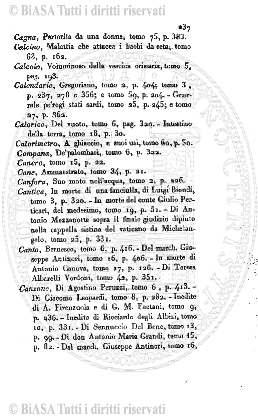 © BiASA Tutti i diritti riservati
237
Cagna, Partorita da una donna, tomo 75, p. 383.
Calcino, Malattia che attacca i bachi da seta, tomo
68, p. 162.
Calcolo, Voluminoso della vescica orinaria, tomo 5,
pag. 198.
Calendario, Gregoriano, tomo 2, p. 404; tomo 3,
p. 237, 278 e 356; e tomo 59, p. 204. - Gene-
rale pe'regi stati sardi, tomo 25, p. 245; e tomo
27, p. 362.
Calorico, Del vuoto, tomo 6, pag. 320. - Intestino
della terra, tomo 18, p. 30.
Calorimetro, A ghiaccio, e suoi usi, tomo 60, p. 50.
Campana, De'palombari, tomo 6, p. 322.
Cancro, tomo 15, p. 22.
Cane, Ammaestrato, tomo 34, p. 21.
Canfora, Suo moto nell'acqua, tomo 2, p. 226.
Cantica, In morte di una fanciulla, di Luigi Biondi,
tomo 3, p. 320. - In morte del conte Giulio Per-
ticari, del medesimo, tomo 19, p. 51. - Di An-
tonio Mezzanotte sopra il finale giudizio dipinto
nella cappella sistina del vaticano da Michelan-
gelo, tomo 25, p. 331.
Canto, Bernesco, tomo 6, p. 416. - Del march. Giu-
seppe Antinori, tomo 16, p. 406. - In morte di
Antonio Canova, tomo 17, p. 126. - Di Teresa
Albarelli Vordoni, tomo 42, p. 351.
Canzone, Di Agostino Peruzzi, tomo 6, p. 413. -
Di Giacomo Leopardi, tomo 8, p. 282. - Inedite
di A. Firenzuola e di G. M. Paetani, tomo 9,
p. 236. - Inedita di Ricciardo degli Albizi, tomo
10, p. 331. - Di Sennuccio Del Bene, tomo 13,
p. 99. - Di don Antonio Maria Grandi, tomo 15,
p. 82. - Del march. Giuseppe Antinori, tomo 16,
© BiASA Tutti i diritti riservati